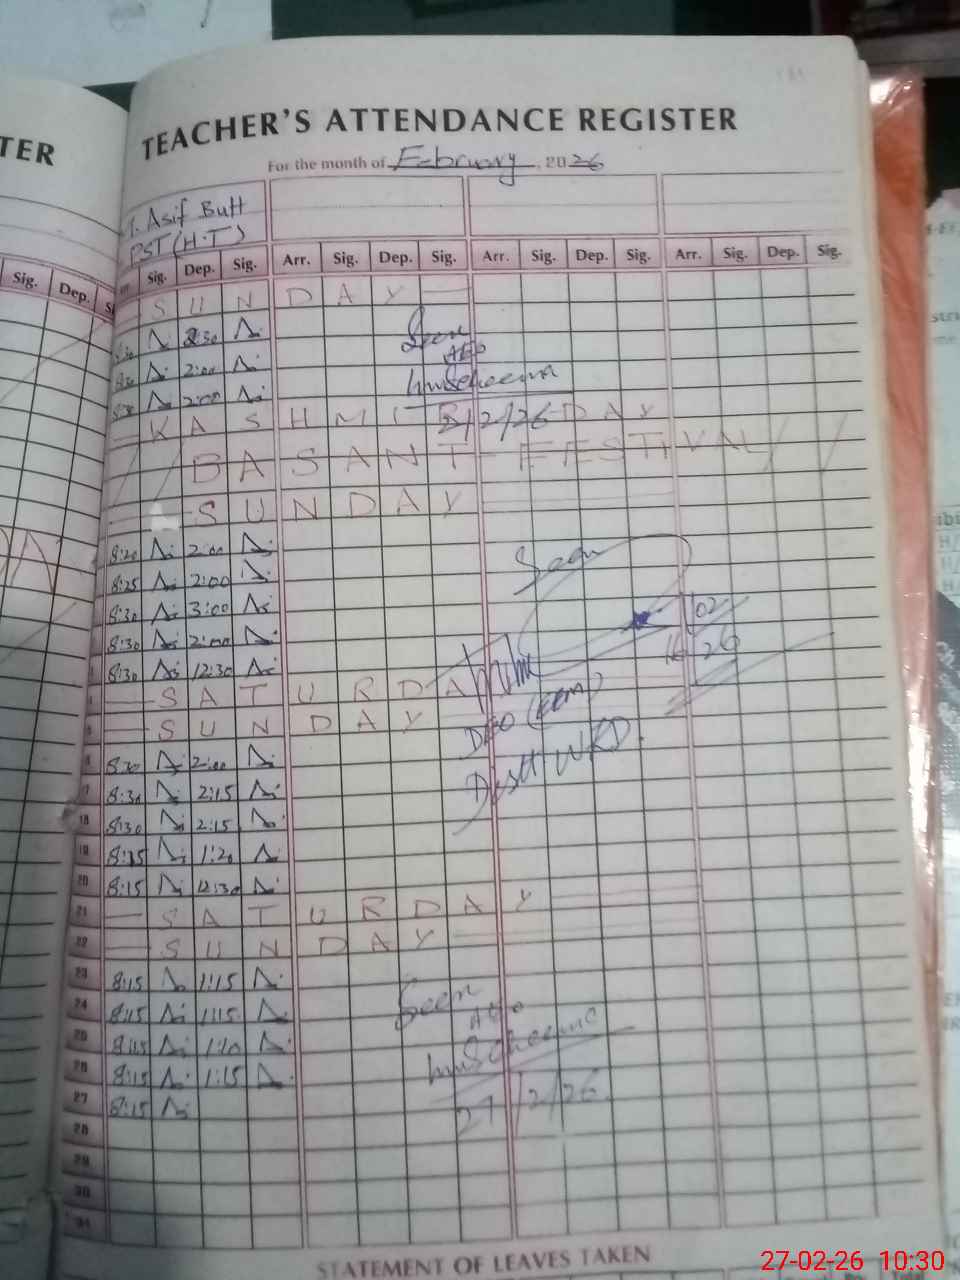 TER
TEACHER'S ATTENDANCE REGISTER
For the month of February, 2026
M. Asif Butt
PST (H.T)
Sig. Dep. Sig. Arr. Sig. Dep. Sig. Arr. Sig. Dep. Sig. Arr. Sig. Dep. Sig.
Sig. Dep.
SUNDAY
8:30 2:30
Seen
AEO
8:30 2:00
8:30 2:00
KASHMIR DAY
5/2/26
BASANT FESTIVAL
SUNDAY
8:20 2:00
Seen
8:25 2:00
8:30 3:00
02
8:30 2:00
16 26
8:30 12:30
SATURDAY
SUNDAY
DEO
8:30 2:00
Distt WKD.
17 8:30 2:15
18 8:30 2:15
19 8:15 1:20
20 8:15 12:30
21 SATURDAY
22 SUNDAY
23 8:15 1:15
Seen
24 8:15 1:15
AEO
25 8:15 1:10
26 8:15 1:15
27 8:15
27/2/26
28
29
30
31
STATEMENT OF LEAVES TAKEN
27-02-26 10:30